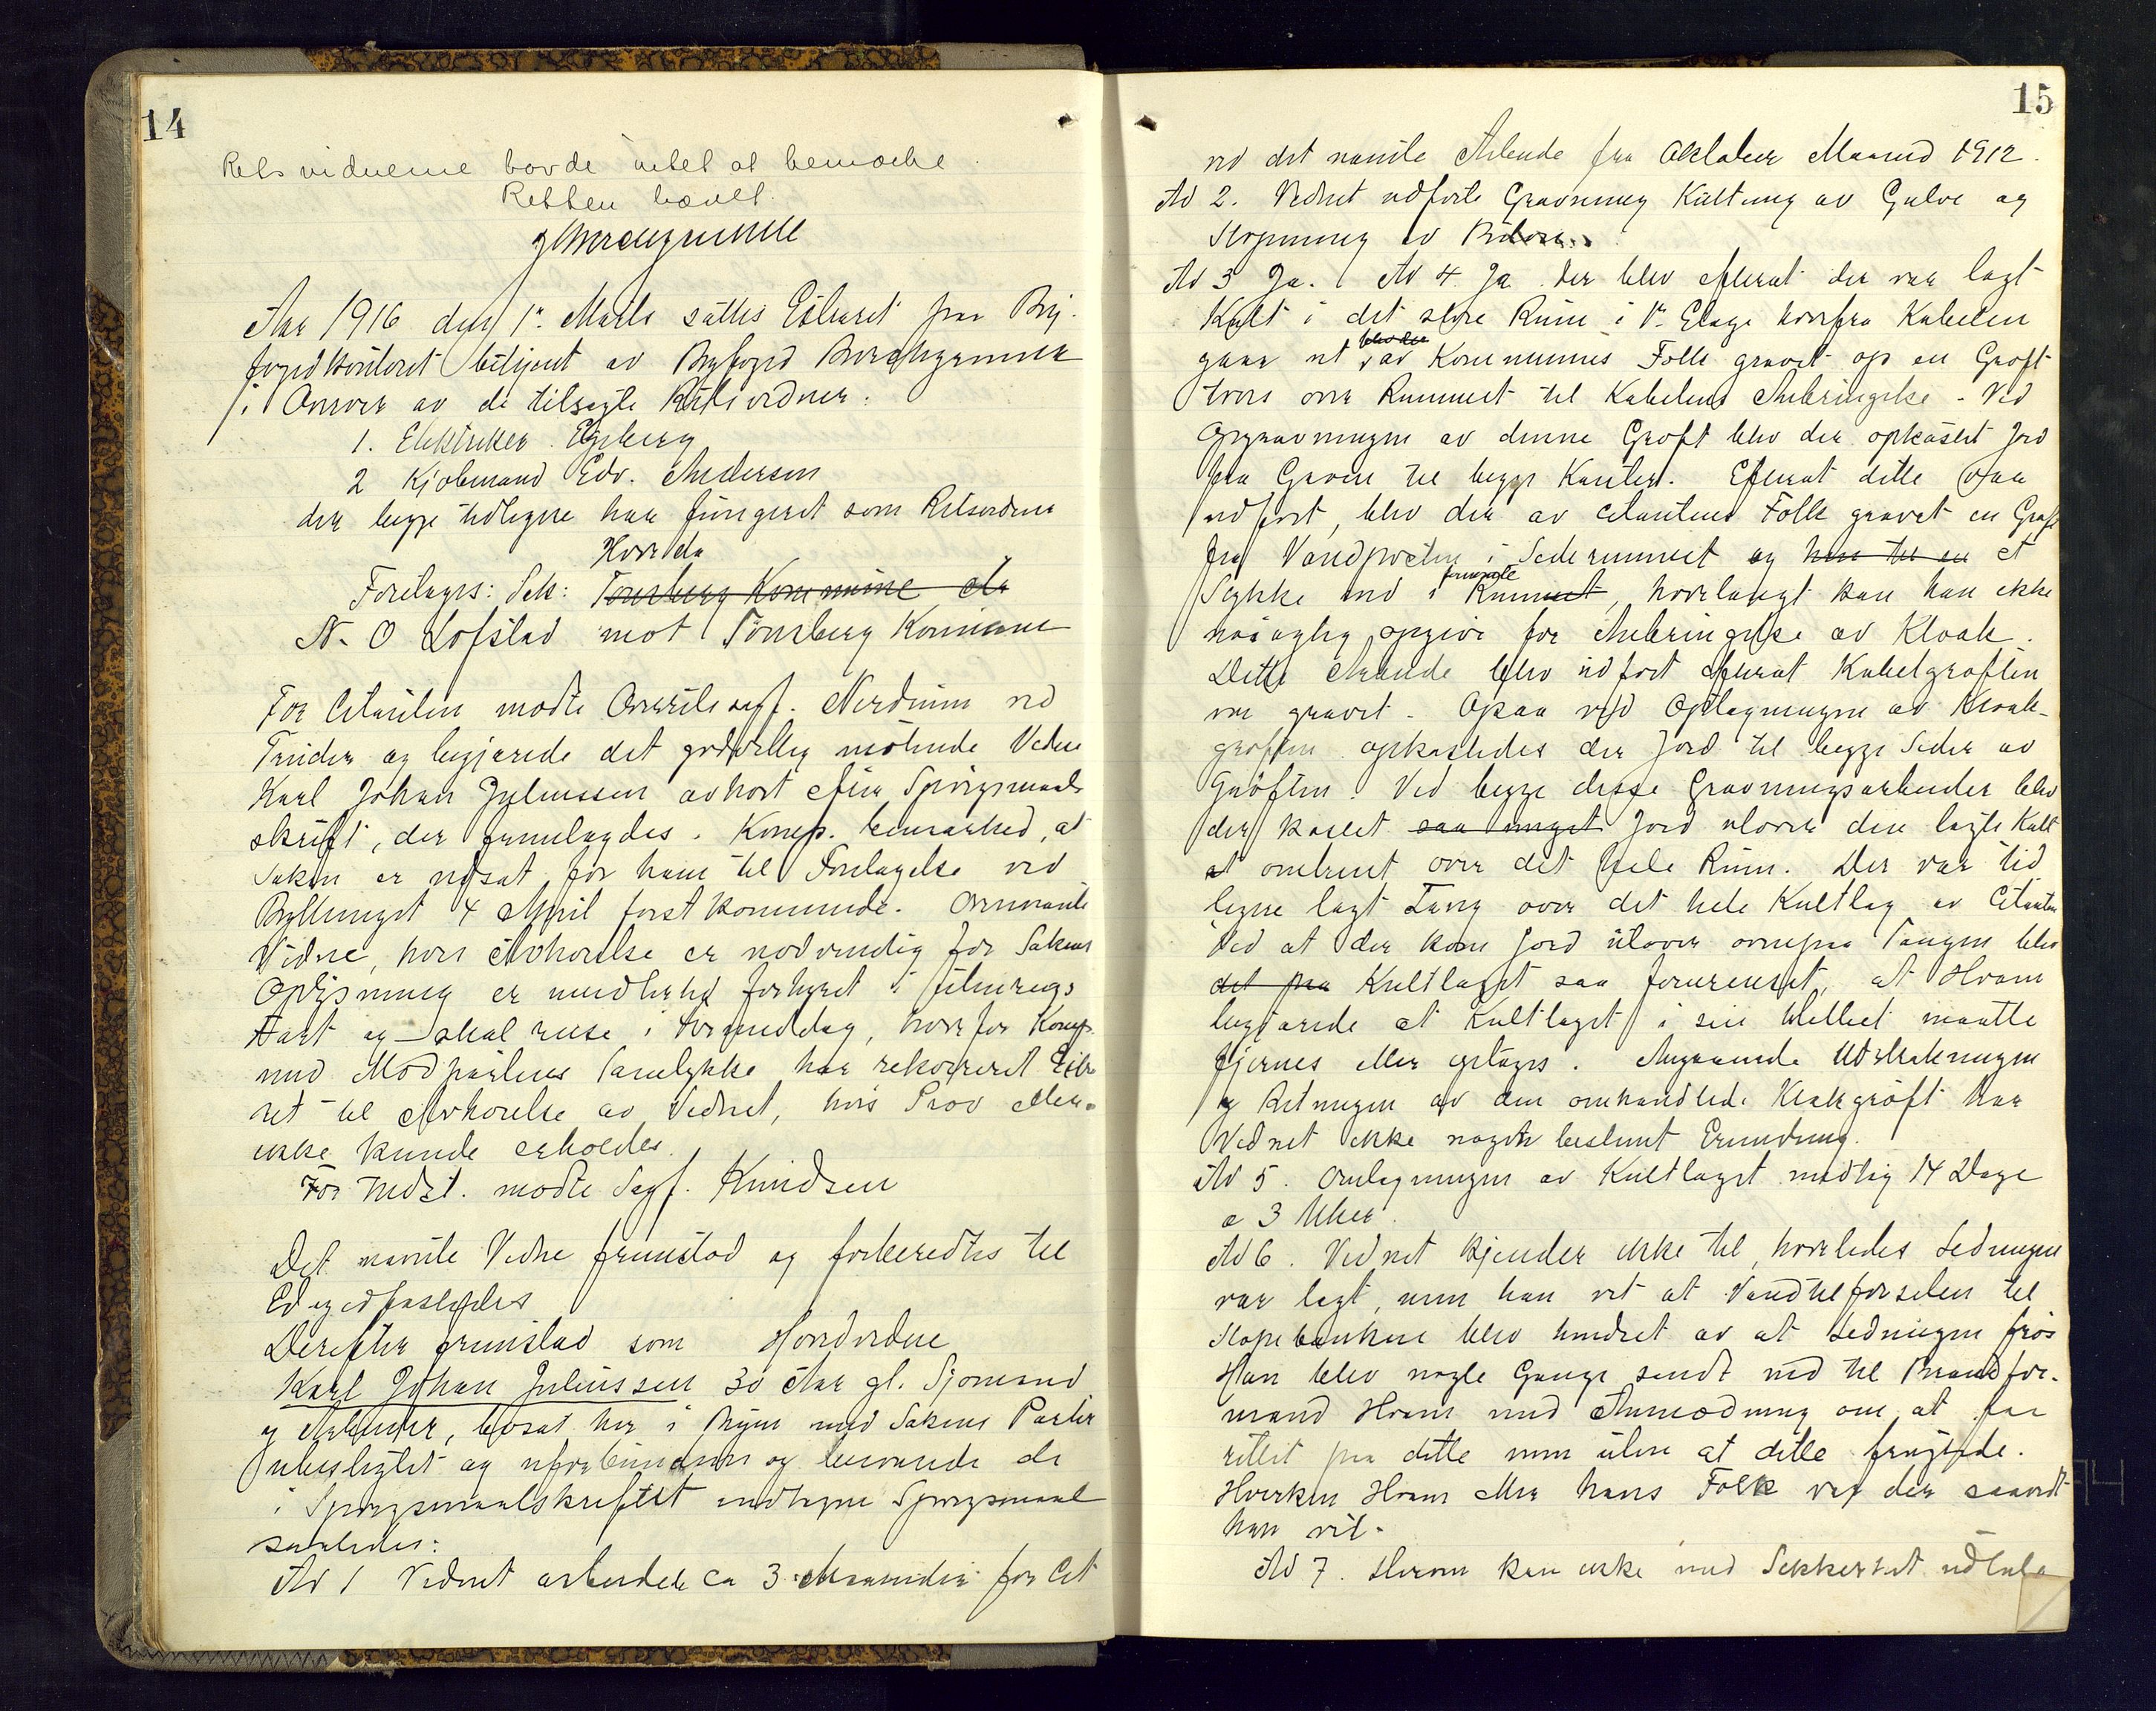 14
Retsvidnerne havde intet at bemærke.
Retten hævet.
Aar 1916 den 1ª Marts sattes Extraret paa By-
fogedkontoret betjent av Byfoged Borchgrevink
i Overvær av de tilsagte Retsvidner:
1. Elektriker Egeberg
2 Kjøbmand Edv. Andersen
der begge tidligere har fungeret som Retsvidner
Hvorda
Foretages: Sak: Tønsberg Kommune eta
N. O Lofstad mot Tønsberg Kommune
For Citanten mødte Overretssagf. Nerdrum ved
og begjærede det godvillig møtende Vidne
Karl Johan Juliussen avhørt efter Spørgsmaals
skrift, der fremlagdes. Komp. bemærked, at
Saken er utsat for ham til Foretagelse ved
Bythinget 4 April førstkommende. Ovennævnte
Vidne, hvis Avhørelse er nødvendig for Sakens
Oplysning er imidlertid forhyret i utenrigs
Fart og skal reise i Formiddag, hvorfor Komp.
med Modpartens Samtykke har rekvireret Extra
ret til Avhørelse av Vidnet, hvis Prov ellers
ikke kunde erholdes.
For Indst. mødte Sagf. Knudsen
Det nævnte Vidne fremstod og forberedtes til
Ed og edfæstedes
Derefter fremstod som Hovedvidne
Karl Johan Juliussen 30 Aar gl. Sjømand
og Arbeider, bosat her i Byen med Sakens Parter
ubeslegtet og uforbunden og besvarede de
i Spørgsmaalskriftet indtagne Spørgsmaal
saaledes:
Ad 1 Vidnet arbeidet ca 3 Maaneder for Cit
15
ved det nævnte Arbeide fra Oktober Maaned 1912.
Ad 2. Vidnet utførte Gravning Kultning av Gulve og
Støpning av
Ad 3 Ja. Ad 4 Ja der blev efterat der var lagt
Kult i det store Rum i 1ª Etage hvorfra Kabelen
blev der
gaar ut av Kommunens Folk gravet op en Grøft
tvers over Rummet til Kabelens Anbringelse. Ved
Opgravningen av denne Grøft blev der opkastet Jord
fra Graven til begge Kanter. Efterat dette var
utført, blev der av Citantens Folk gravet en Grøft
fra Vandposten i Siderummet og hen til en et
Stykke ind i Rummet, hvorlangt kan han ikke
nøiagtig opgive for Anbringelse av Kloak.
Dette Arbeide blev utført efterat Kabelgrøften
var gravet. Ogsaa ved Optagningen av Kloak-
grøften opkastedes der Jord til begge Sider av
Grøften. Ved begge disse Gravningsarbeider blev
der kastet saa meget Jord utover den lagte Kult
at omtrent over det hele Rum. Der var tid
ligere lagt Tang over det hele Kultlag av Citanten
Ved at der kom Jord utover ovenpaa Tangen blev
det paa Kultlaget saa forurenset, at Hvam
begjærede at Kultlaget i sin Helhet maatte
fjernes eller optages. Angaaende Utstrækningen
og Retningen av den omhandlede Kloakgrøft har
Vidnet ikke nogen bestemt Erindring.
Ad 5. Omlægningen av Kultlaget medtog 14 Dage
a 3 Uker.
Ad 6. Vidnet kjender ikke til, hvorledes Ledningen
var lagt, men han vet at Vandtilførselen til
Støpebænken blev hindret av at Ledningen frøs
Han blev nogle Gange sendt ned til Brandfor-
mand Hvam med Anmodning om at faa
rettet paa dette men uten at dette frugtede.
Hverken Hvam eller hans Folk var der saavidt
han vet.
Ad 7. Herom kan ikke med Sikkerhet udtale